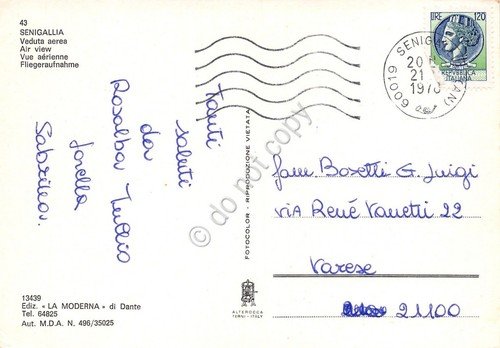 43
SENIGALLIA
Veduta aerea
Air view
Vue aérienne
Fliegeraufnahme
LIRE 120
REPUBBLICA
ITALIANA
60019 SENIGALLIA (AN)
20
21
1976
Tanti
saluti
da
Rosalba Tullio
Sabrina
Fam Bosetti G. Luigi
VIA René Vanetti 22
Varese
21100
FOTOCOLOR - RIPRODUZIONE VIETATA
© do not copy
ALTEROCCA
TERNI - ITALY
13439
Ediz. « LA MODERNA » di Dante
Tel. 64825
Aut. M.D.A. N. 496/35025